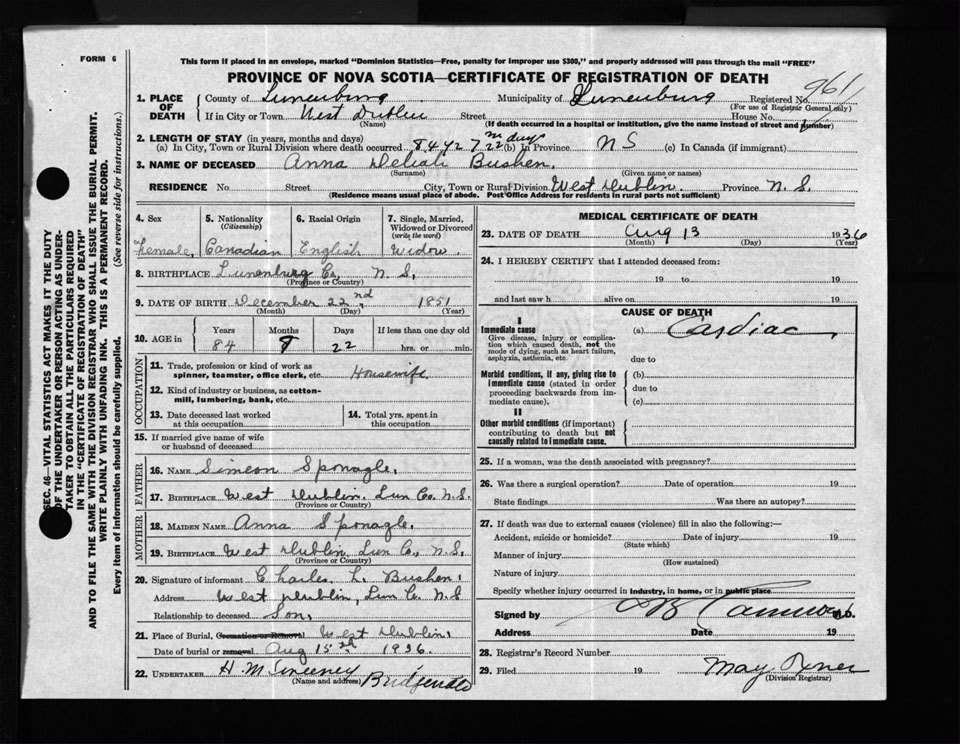 FORM 6
This form if placed in an envelope, marked "Dominion Statistics—Free, penalty for improper use $300," and properly addressed will pass through the mail "FREE"
PROVINCE OF NOVA SCOTIA—CERTIFICATE OF REGISTRATION OF DEATH
961
1. PLACE OF DEATH County of Lunenburg Municipality of Lunenburg Registered No.
(For use of Registrar General only)
If in City or Town West Dublin Street House No.
(Name) (If death occurred in a hospital or institution, give the name instead of street and number)
2. LENGTH OF STAY (in years, months and days)
(a) In City, Town or Rural Division where death occurred 84 y 7 m 22 days (b) In Province N S (c) In Canada (if immigrant)
3. NAME OF DECEASED Anna Deliah Bushen.
(Surname) (Given name or names)
RESIDENCE No Street City, Town or Rural Division West Dublin. Province N. S.
(Residence means usual place of abode. Post Office Address for residents in rural parts not sufficient)
SEC. 46—VITAL STATISTICS ACT MAKES IT THE DUTY
OF THE UNDERTAKER OR PERSON ACTING AS UNDER-
TAKER TO OBTAIN ALL THE PARTICULARS REQUIRED
IN THE "CERTIFICATE OF REGISTRATION OF DEATH"
AND TO FILE THE SAME WITH THE DIVISION REGISTRAR WHO SHALL ISSUE THE BURIAL PERMIT.
WRITE PLAINLY WITH UNFADING INK. THIS IS A PERMANENT RECORD.
Every item of information should be carefully supplied. (See reverse side for instructions.)
4. Sex 5. Nationality (Citizenship) 6. Racial Origin 7. Single, Married, Widowed or Divorced (write the word)
Female, Canadian English Widow.
8. BIRTHPLACE Lunenburg Co, N. S,
(Province or Country)
9. DATE OF BIRTH December 22nd, 1851
(Month) (Day) (Year)
10. AGE in Years Months Days If less than one day old
84 22 hrs. or min.
OCCUPATION
11. Trade, profession or kind of work as spinner, teamster, office clerk, etc. Housewife
12. Kind of industry or business, as cotton-mill, lumbering, bank, etc.
13. Date deceased last worked at this occupation
14. Total yrs. spent in this occupation
15. If married give name of wife or husband of deceased
FATHER
16. NAME Simeon Sponagle.
17. BIRTHPLACE West Dublin. Lun Co. N.S.
(Province or Country)
MOTHER
18. MAIDEN NAME Anna Sponagle.
19. BIRTHPLACE West Dublin, Lun Co., N. S,
(Province or Country)
20. Signature of informant Charles L. Bushen.
Address West Dublin, Lun Co. N.S
Relationship to deceased Son,
21. Place of Burial, Cremation or Removal West Dublin,
Date of burial or removal Aug 15 1936.
22. UNDERTAKER H. M Sweeney
(Name and address)
MEDICAL CERTIFICATE OF DEATH
23. DATE OF DEATH Aug 13 1936
(Month) (Day) (Year)
24. I HEREBY CERTIFY that I attended deceased from:
19 to 19
and last saw h alive on 19
CAUSE OF DEATH
I
Immediate cause
Give disease, injury or complication which caused death, not the mode of dying, such as heart failure, asphyxia, asthenia, etc.
(a) Cardiac
due to
Morbid conditions, if any, giving rise to immediate cause (stated in order proceeding backwards from immediate cause).
(b)
due to
(c)
II
Other morbid conditions (if important) contributing to death but not causally related to immediate cause.
25. If a woman, was the death associated with pregnancy?
26. Was there a surgical operation? Date of operation 19
State findings Was there an autopsy?
27. If death was due to external causes (violence) fill in also the following:—
Accident, suicide or homicide? Date of injury 19
(State which)
Manner of injury
(How sustained)
Nature of injury
Specify whether injury occurred in industry, in home, or in public place
Signed by M.D.
Address Date 19
28. Registrar's Record Number
29. Filed 19 May
(Division Registrar)